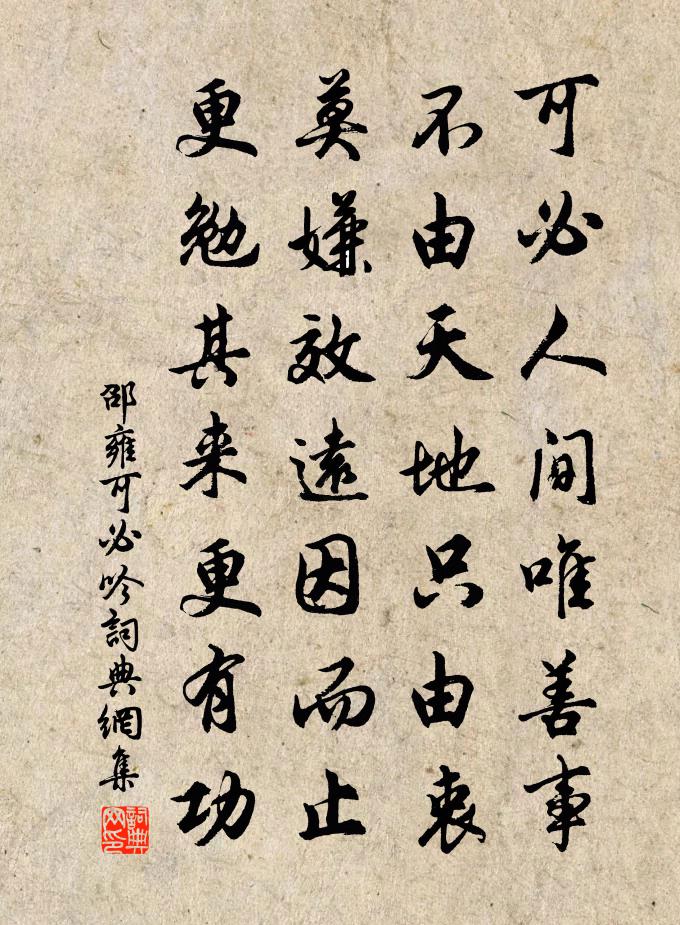 可必人間唯善事
不由天地只由衷
莫嫌效遠因而止
更勉其來更有功
邵雍可必吟詞典網集
詞典網印